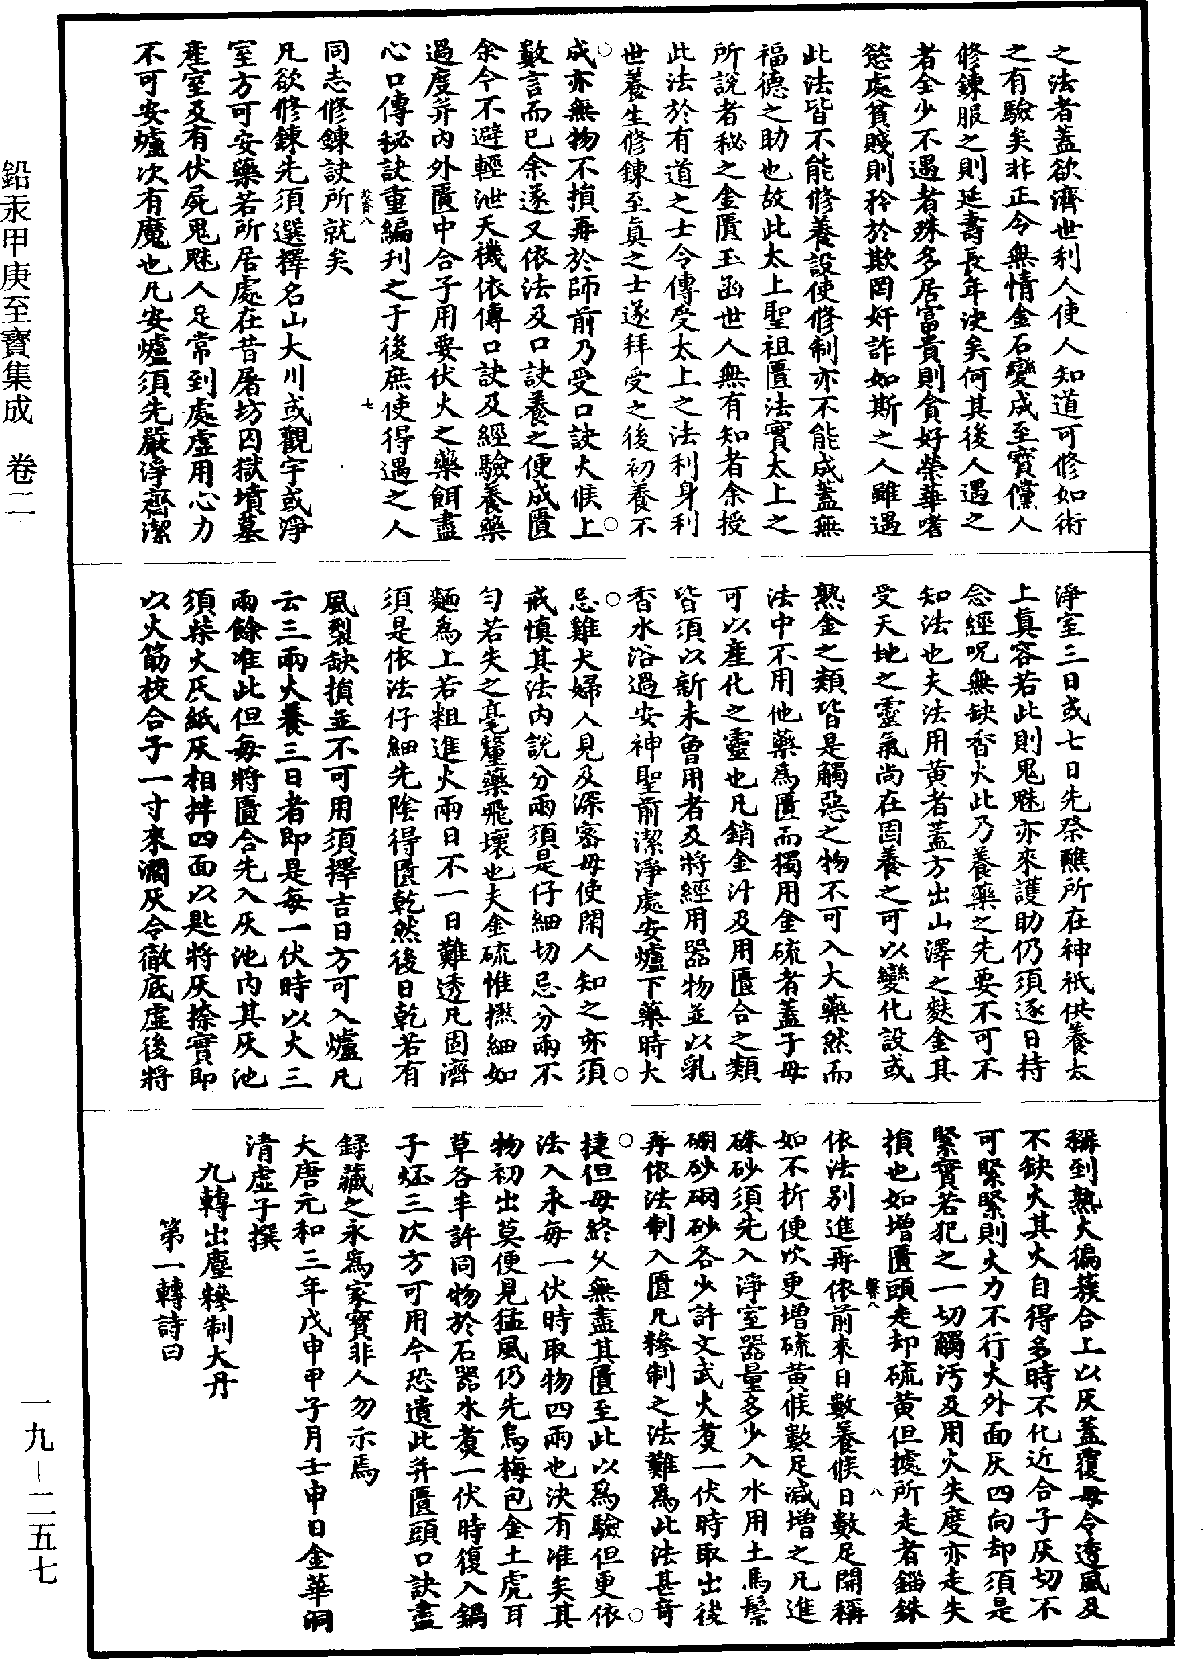 鉛汞甲庚至寶集成　卷二
一九—二五七
之法者蓋欲濟世利人使人知道可修如術
之有驗矣非正令無情金石變成至寶儻人
修鍊服之則延壽長年決矣何其後人遇之
者全少不遇者殊多居富貴則貪好榮華嗜
慾處貧賤則矜於欺罔奸詐如斯之人雖遇
此法皆不能修養設使修制亦不能成蓋無
福德之助也故此太上聖祖匱法實太上之
所說者秘之金匱玉函世人無有知者余授
此法於有道之士令傳受太上之法利身利
世養生修鍊至真之士遂拜受之後初養不
成亦無物不損再於師前乃受口訣火候上
數言而已余遂又依法及口訣養之便成匱
余今不避輕泄天機依傳口訣及經驗養藥
過度并內外匱中合子用要伏火之藥餌盡
心口傳秘訣重編刋之于後庶使得遇之人
同志修鍊訣所就矣
凡欲修鍊先須選擇名山大川或觀宇或淨
室方可安藥若所居處在昔屠坊囚獄墳墓
產室及有伏屍鬼魅人足常到處虛用心力
不可安爐次有魔也凡安爐須先嚴淨齋潔
淨室三日或七日先祭醮所在神祇供養太
上真容若此則鬼魅亦來護助仍須逐日持
念經呪無缺香火此乃養藥之先要不可不
知法也夫法用黃者蓋方出山澤之麩金其
受天地之靈氣尚在固養之可以變化設或
熟金之類皆是觸惡之物不可入大藥然而
法中不用他藥為匱而獨用金硫者蓋子母
可以產化之靈也凡銷金汁及用匱合之類
皆須以新未曾用者及將經用器物並以乳
香水浴過安神聖前潔淨處安爐下藥時大
忌雞犬婦人見及深密毋使閑人知之亦須
戒慎其法內說分兩須是仔細切忌分兩不
勻若失之毫釐藥飛壞也夫金硫惟撚細如
麵為上若粗進火兩日不一日難透凡固濟
須是依法仔細先陰得匱乾然後日乾若有
風裂缺損並不可用須擇吉日方可入爐凡
云三兩火養三日者即是每一伏時以火三
兩餘准此但每將匱合先入灰池內其灰池
須柴火民紙灰相拌四面以匙將灰捺實即
以火筯挍合子一寸來濶灰令徹底虛後將
稱到熟火徧蔟合上以灰蓋覆毋令透風及
不缺火其火自得多時不化近合子灰切不
可緊緊則火力不行火外面灰四向却須是
緊實若犯之一切觸污及用火失度亦走失
損也如增匱頭走却硫黃但據所走者錙銖
依法別進再依前來日數養候日數足開稱
如不折便次更增硫黃候數足減增之凡進
硃砂須先入淨室器量多少入水用土馬鬃
硼砂硇砂各少許文武火煑一伏時取出後
再依法制入匱凡糝制之法難為此法甚奇
捷但毋終久無盡其匱至此以為驗但更依
法入汞每一伏時取物四兩也決有准矣其
物初出莫便見猛風仍先烏梅包金土虎耳
草各半許同物於石器水煑一伏時復入鍋
子炡三次方可用今恐遺此并匱頭口訣盡
録藏之永為家寶非人勿示焉
大唐元和三年戊申甲子月壬申日金華洞
清虛子撰
九轉出塵糝制大丹
第一轉詩曰